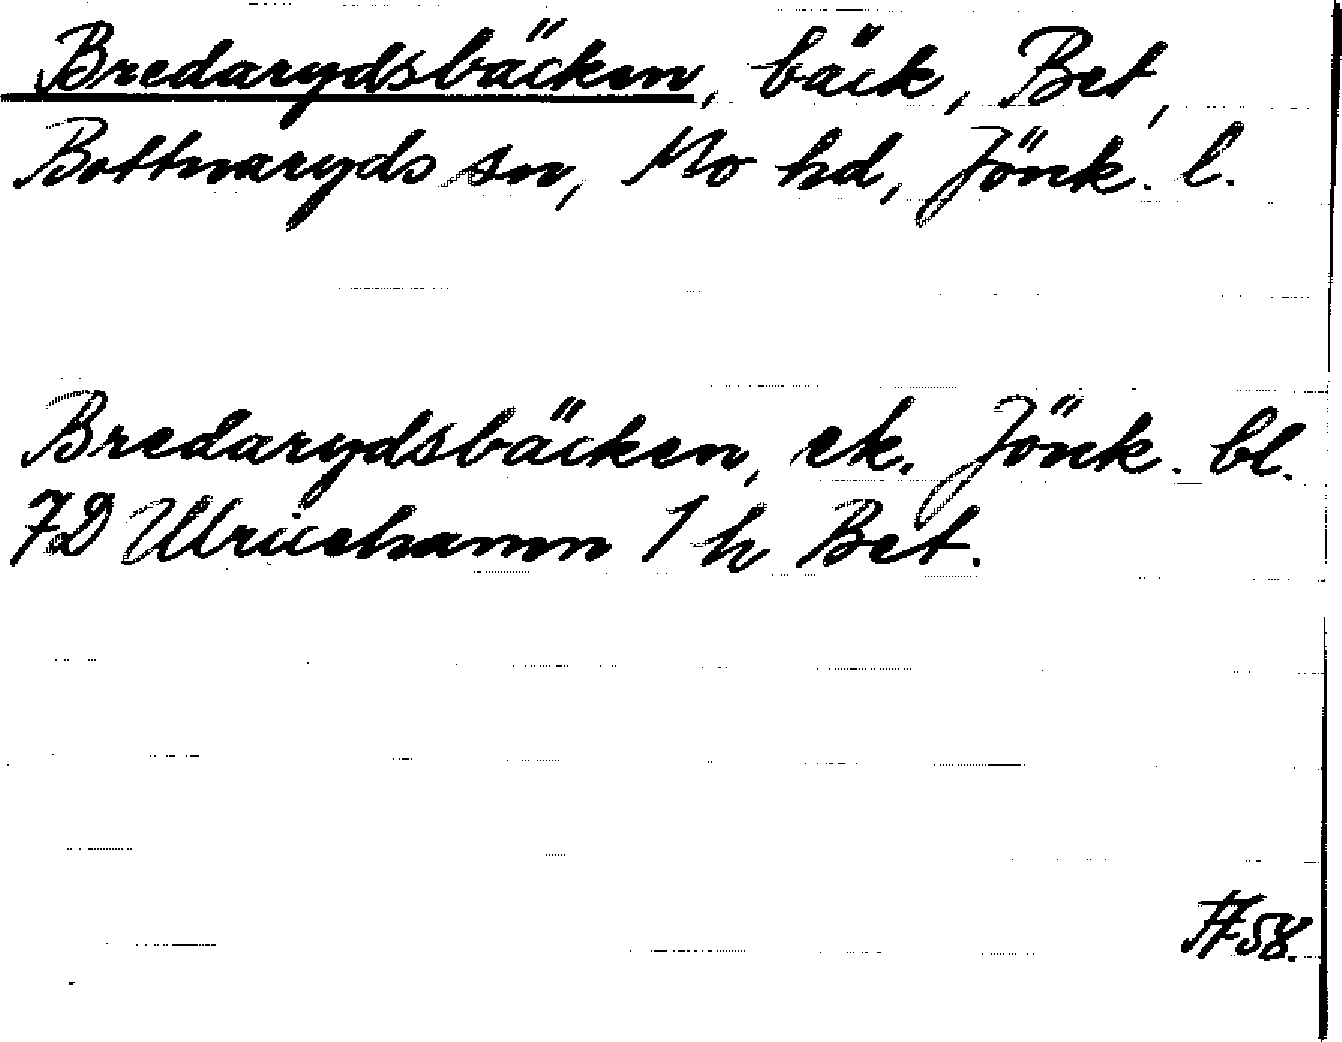 Bredarydsbäcken, bäck, Bet,
Bottnaryds sn, Mo hd, Jönk. l.
Bredarydsbäcken, ek. Jönk. bl.
7D Ulricehamn 1 h Bet.
58.